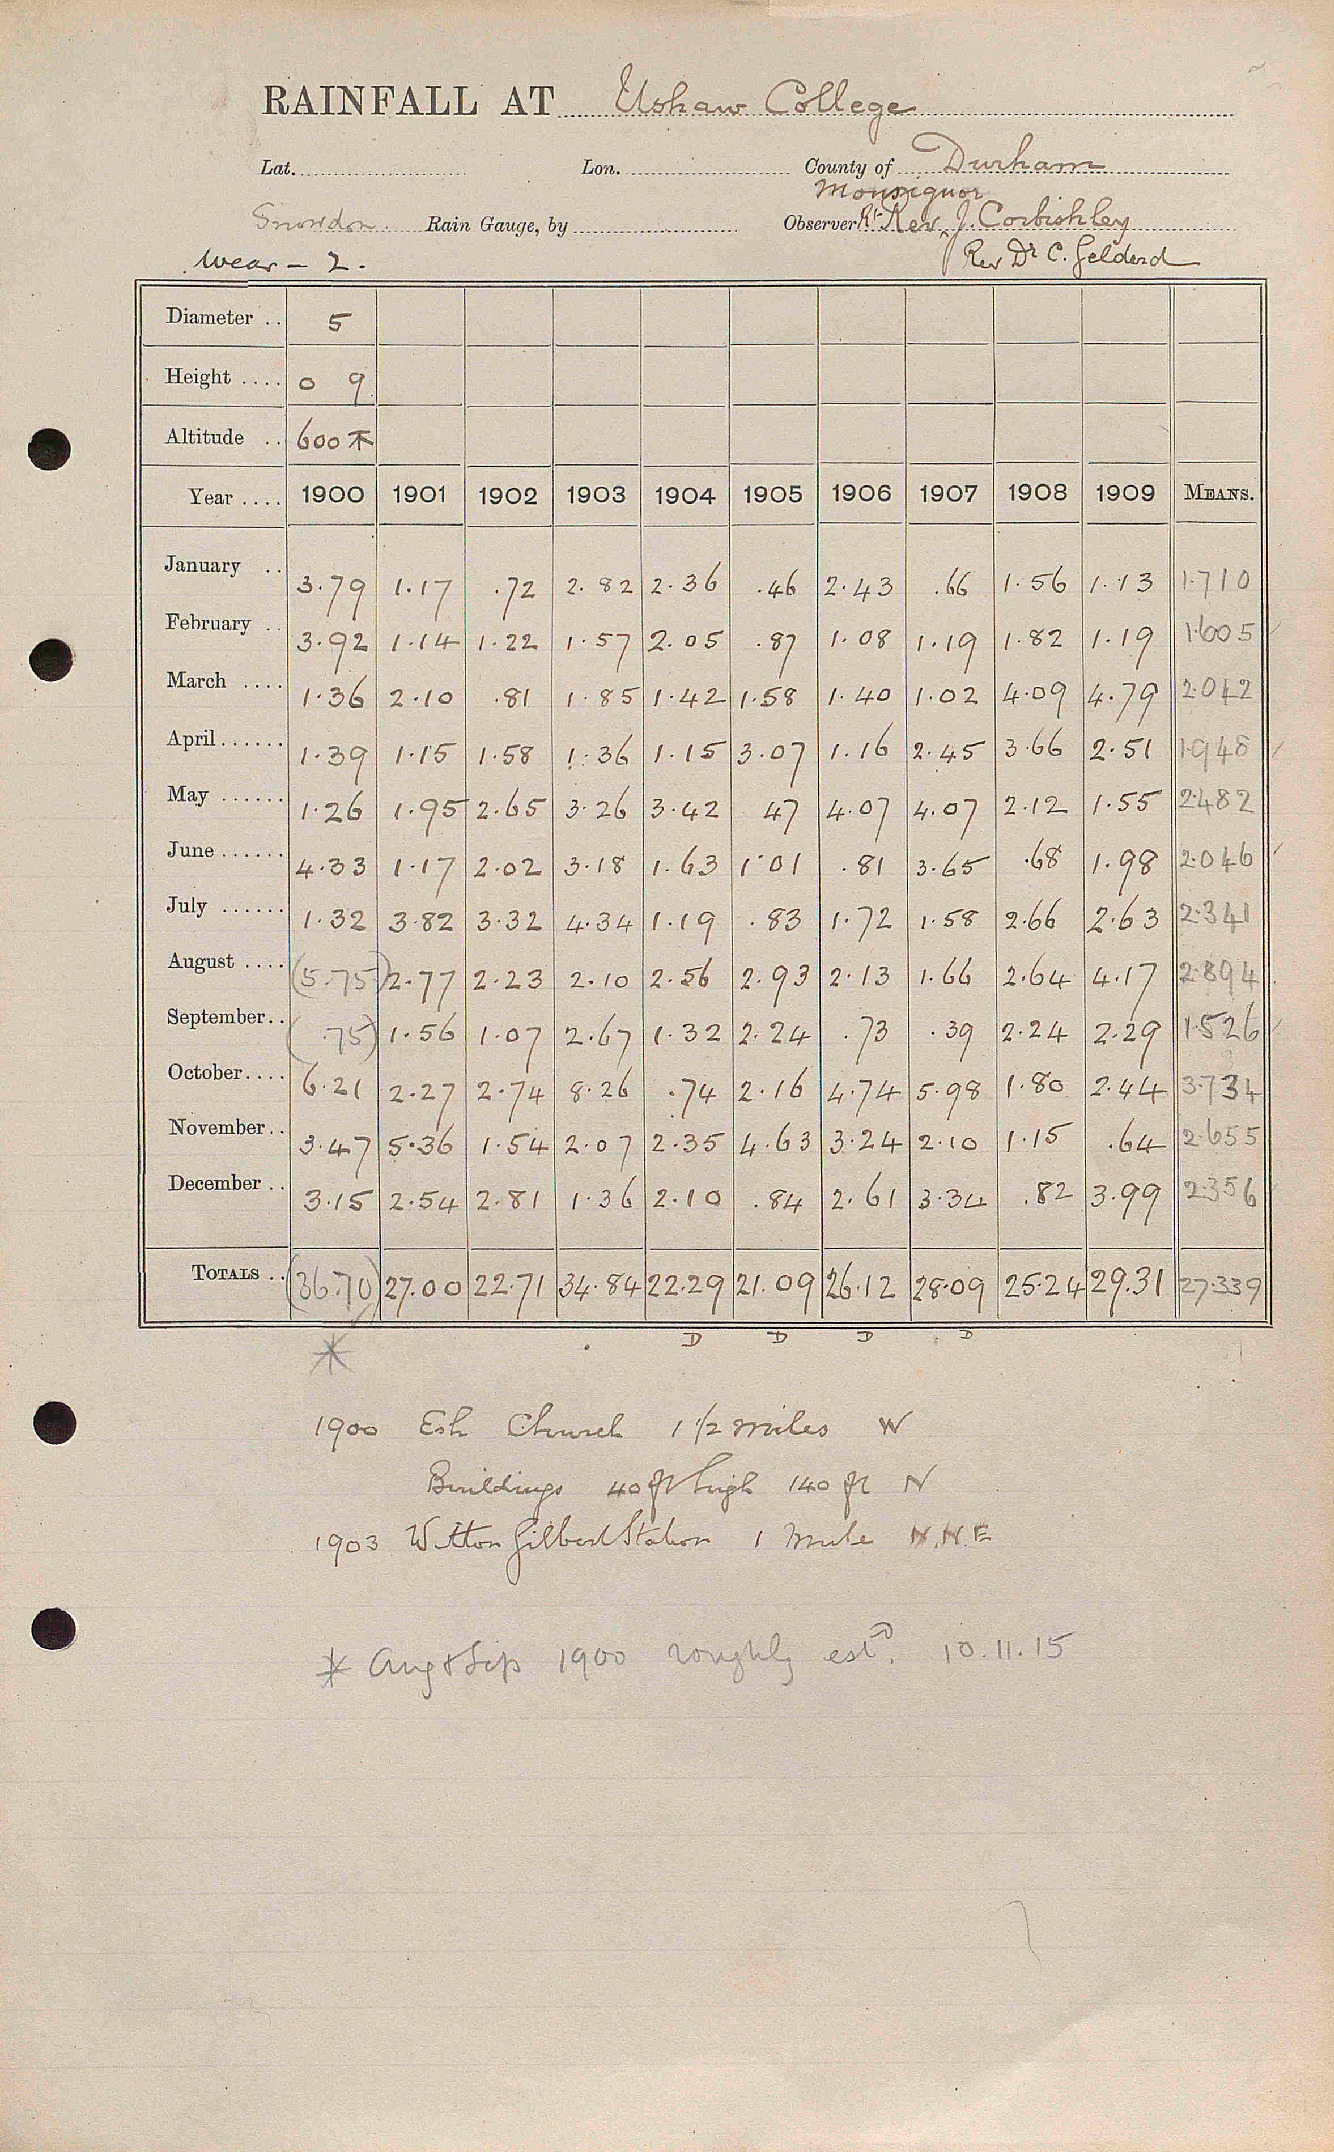 RAINFALL AT Ushaw College
Lat. Lon. County of Durham
Monsignor
Snowdon Rain Gauge, by Observer Rt. Rev. J. Corbishley
Wear - 2. Rev Dr C. Gelderd
Diameter .. 5
Height .... 0 9
Altitude .. 600 T
Year .... 1900 1901 1902 1903 1904 1905 1906 1907 1908 1909 MEANS.
January .. 3.79 1.17 .72 2.82 2.36 .46 2.43 .66 1.56 1.13 1.710
February .. 3.92 1.14 1.22 1.57 2.05 .87 1.08 1.19 1.82 1.19 1.605
March .... 1.36 2.10 .81 1.85 1.42 1.58 1.40 1.02 4.09 4.79 2.042
April...... 1.39 1.15 1.58 1.36 1.15 3.07 1.16 2.45 3.66 2.51 1.948
May ...... 1.26 1.95 2.65 3.26 3.42 47 4.07 4.07 2.12 1.55 2.482
June ...... 4.33 1.17 2.02 3.18 1.63 1.01 .81 3.65 .68 1.98 2.046
July ...... 1.32 3.82 3.32 4.34 1.19 .83 1.72 1.58 2.66 2.63 2.341
August .... (5.75) 2.77 2.23 2.10 2.56 2.93 2.13 1.66 2.64 4.17 2.894
September.. (.75) 1.56 1.07 2.67 1.32 2.24 .73 .39 2.24 2.29 1.526
October.... 6.21 2.27 2.74 8.26 .74 2.16 4.74 5.98 1.80 2.44 3.734
November.. 3.47 5.36 1.54 2.07 2.35 4.63 3.24 2.10 1.15 .64 2.655
December .. 3.15 2.54 2.81 1.36 2.10 .84 2.61 3.34 .82 3.99 2.356
TOTALS .. (36.70) 27.00 22.71 34.84 22.29 21.09 26.12 28.09 25.24 29.31 27.339
* D D D D
1900 Esh Church 1 1/2 miles W
Buildings 40 ft high 140 ft N
1903 Witton Gilbert Station 1 mile N.N.E
* Aug & Sep 1900 roughly estd. 10.11.15